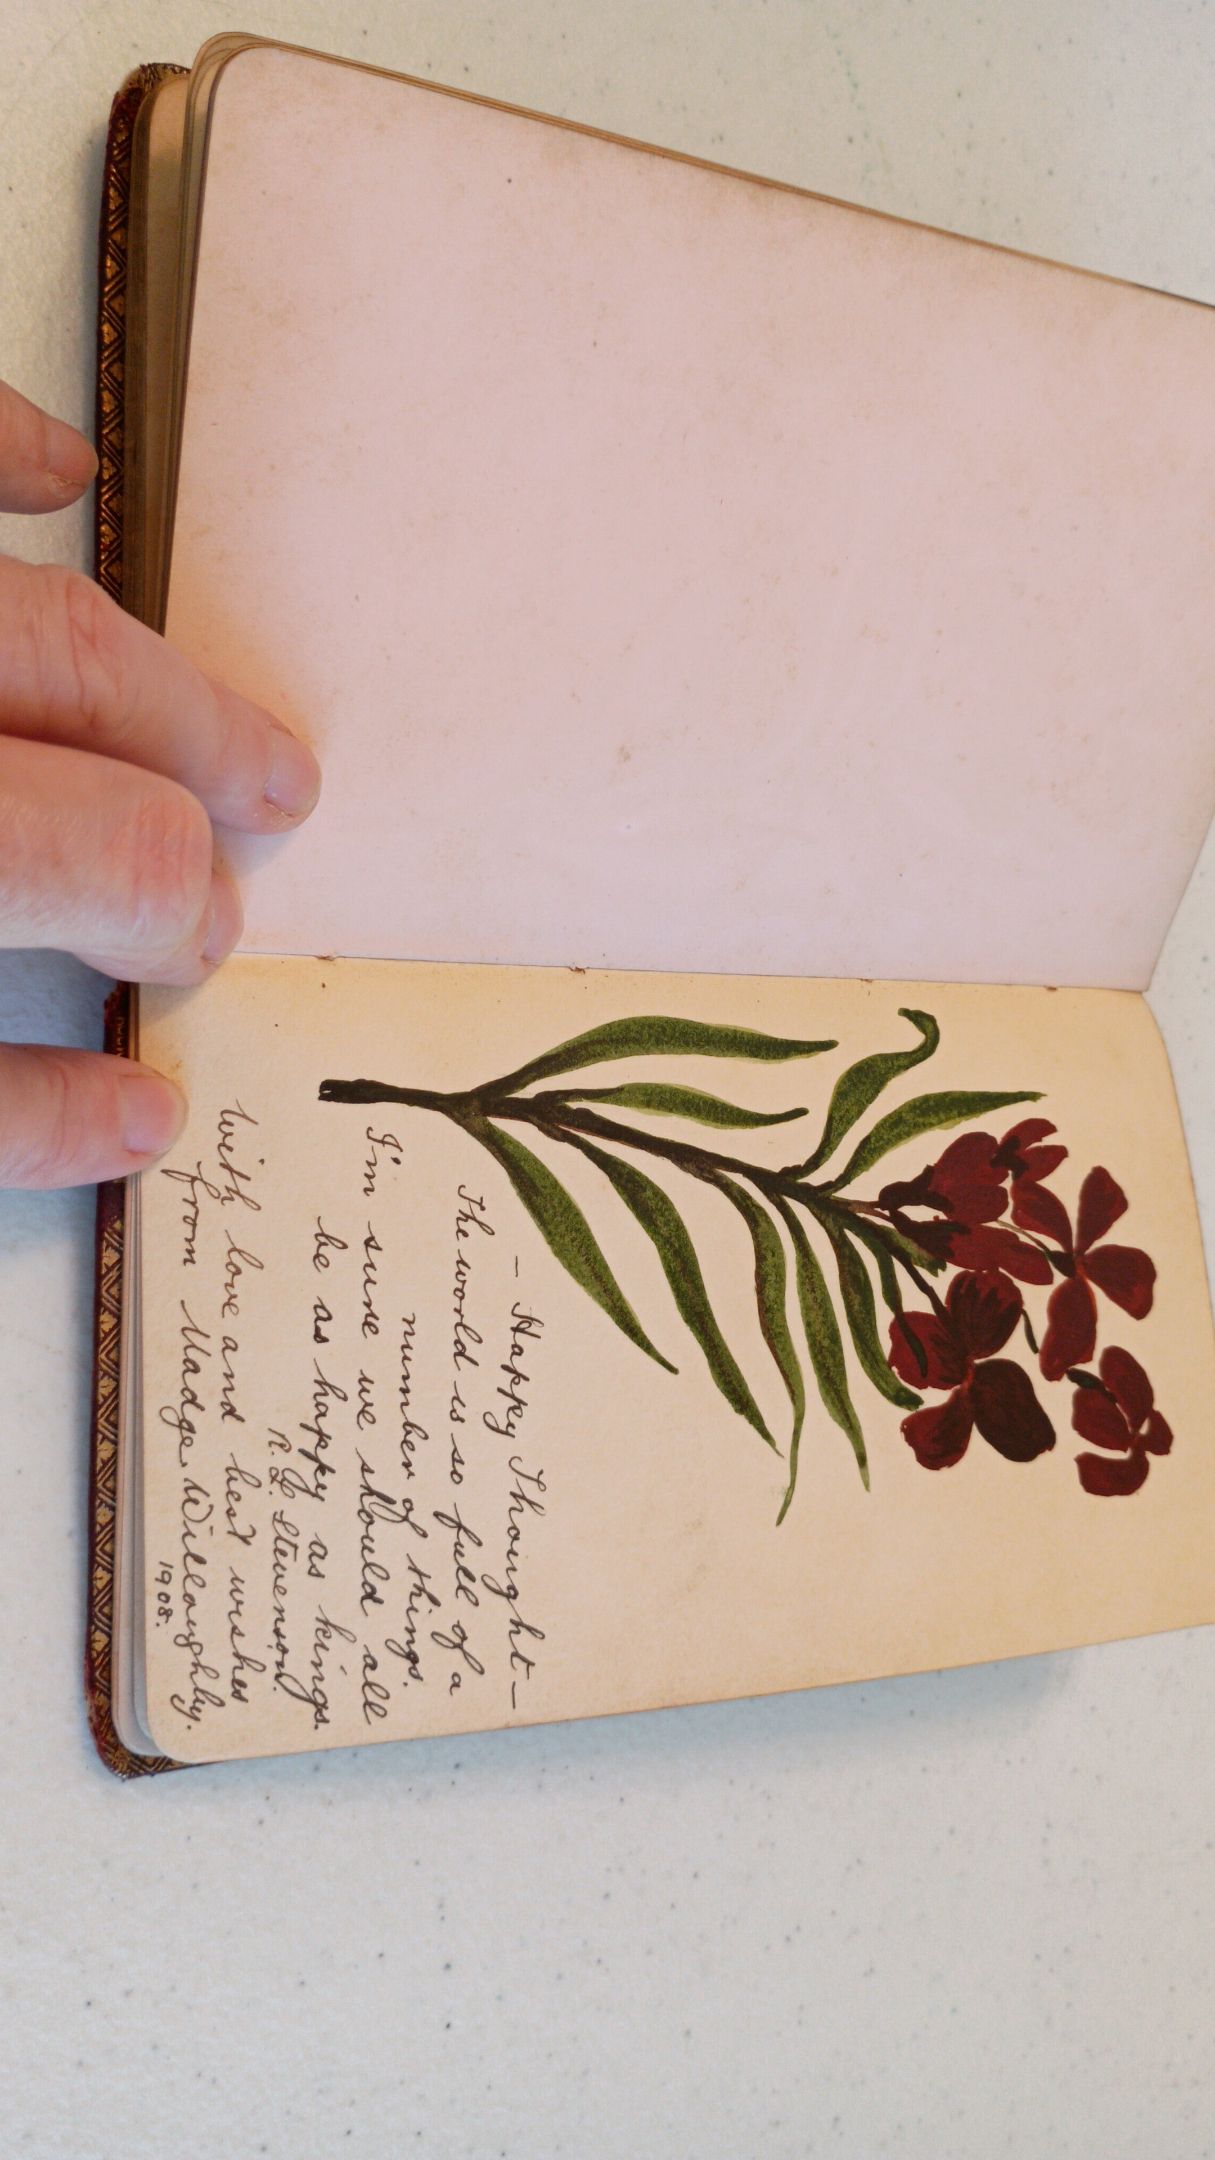 – Happy Thought –
The world is so full of a
number of things.
I'm sure we should all
be as happy as kings.
R. L. Stevenson.
With love and best wishes
from Madge Willoughby.
1908.